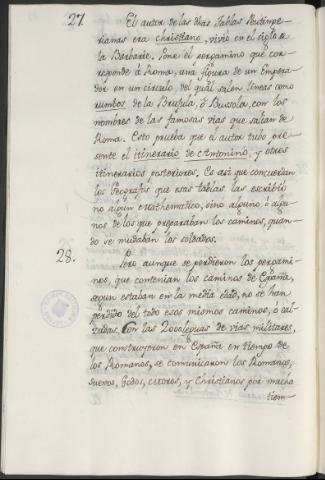 27. El autor de las dhas Tablas Peutinge-
rianas era christiano, vivió en el siglo de
la Barbarie. Pone el pergamino que cor-
responde á Roma, una figura de un Empera-
dor en un circulo, del qual salen lineas como
rumbos de la Bruxula, ó Bussola, con los
nombres de las famosas vias que salian de
Roma. Esto prueba que el autor tubo pre-
sente el itinerario de Antonino, y otros
itinerarios posteriores. Es asi que concuerdan
los Geografos que esas tablas las escribio
no algun Mathematico, sino alguno ó algu-
nos de los que preparaban los caminos, quan-
do se mudaban los soldados.
28. Pero aunque se perdieron los pergami-
nos, que contenian los caminos de España,
segun estaban en la media edad, no se han
perdido del todo esos mismos caminos, ó cal-
zadas. Con las leguas de vias militares,
que construyeron en España en tiempo de
los Romanos, se comunicaron los Romanos,
Suevos, Godos, y Christianos por mucho
tiem-